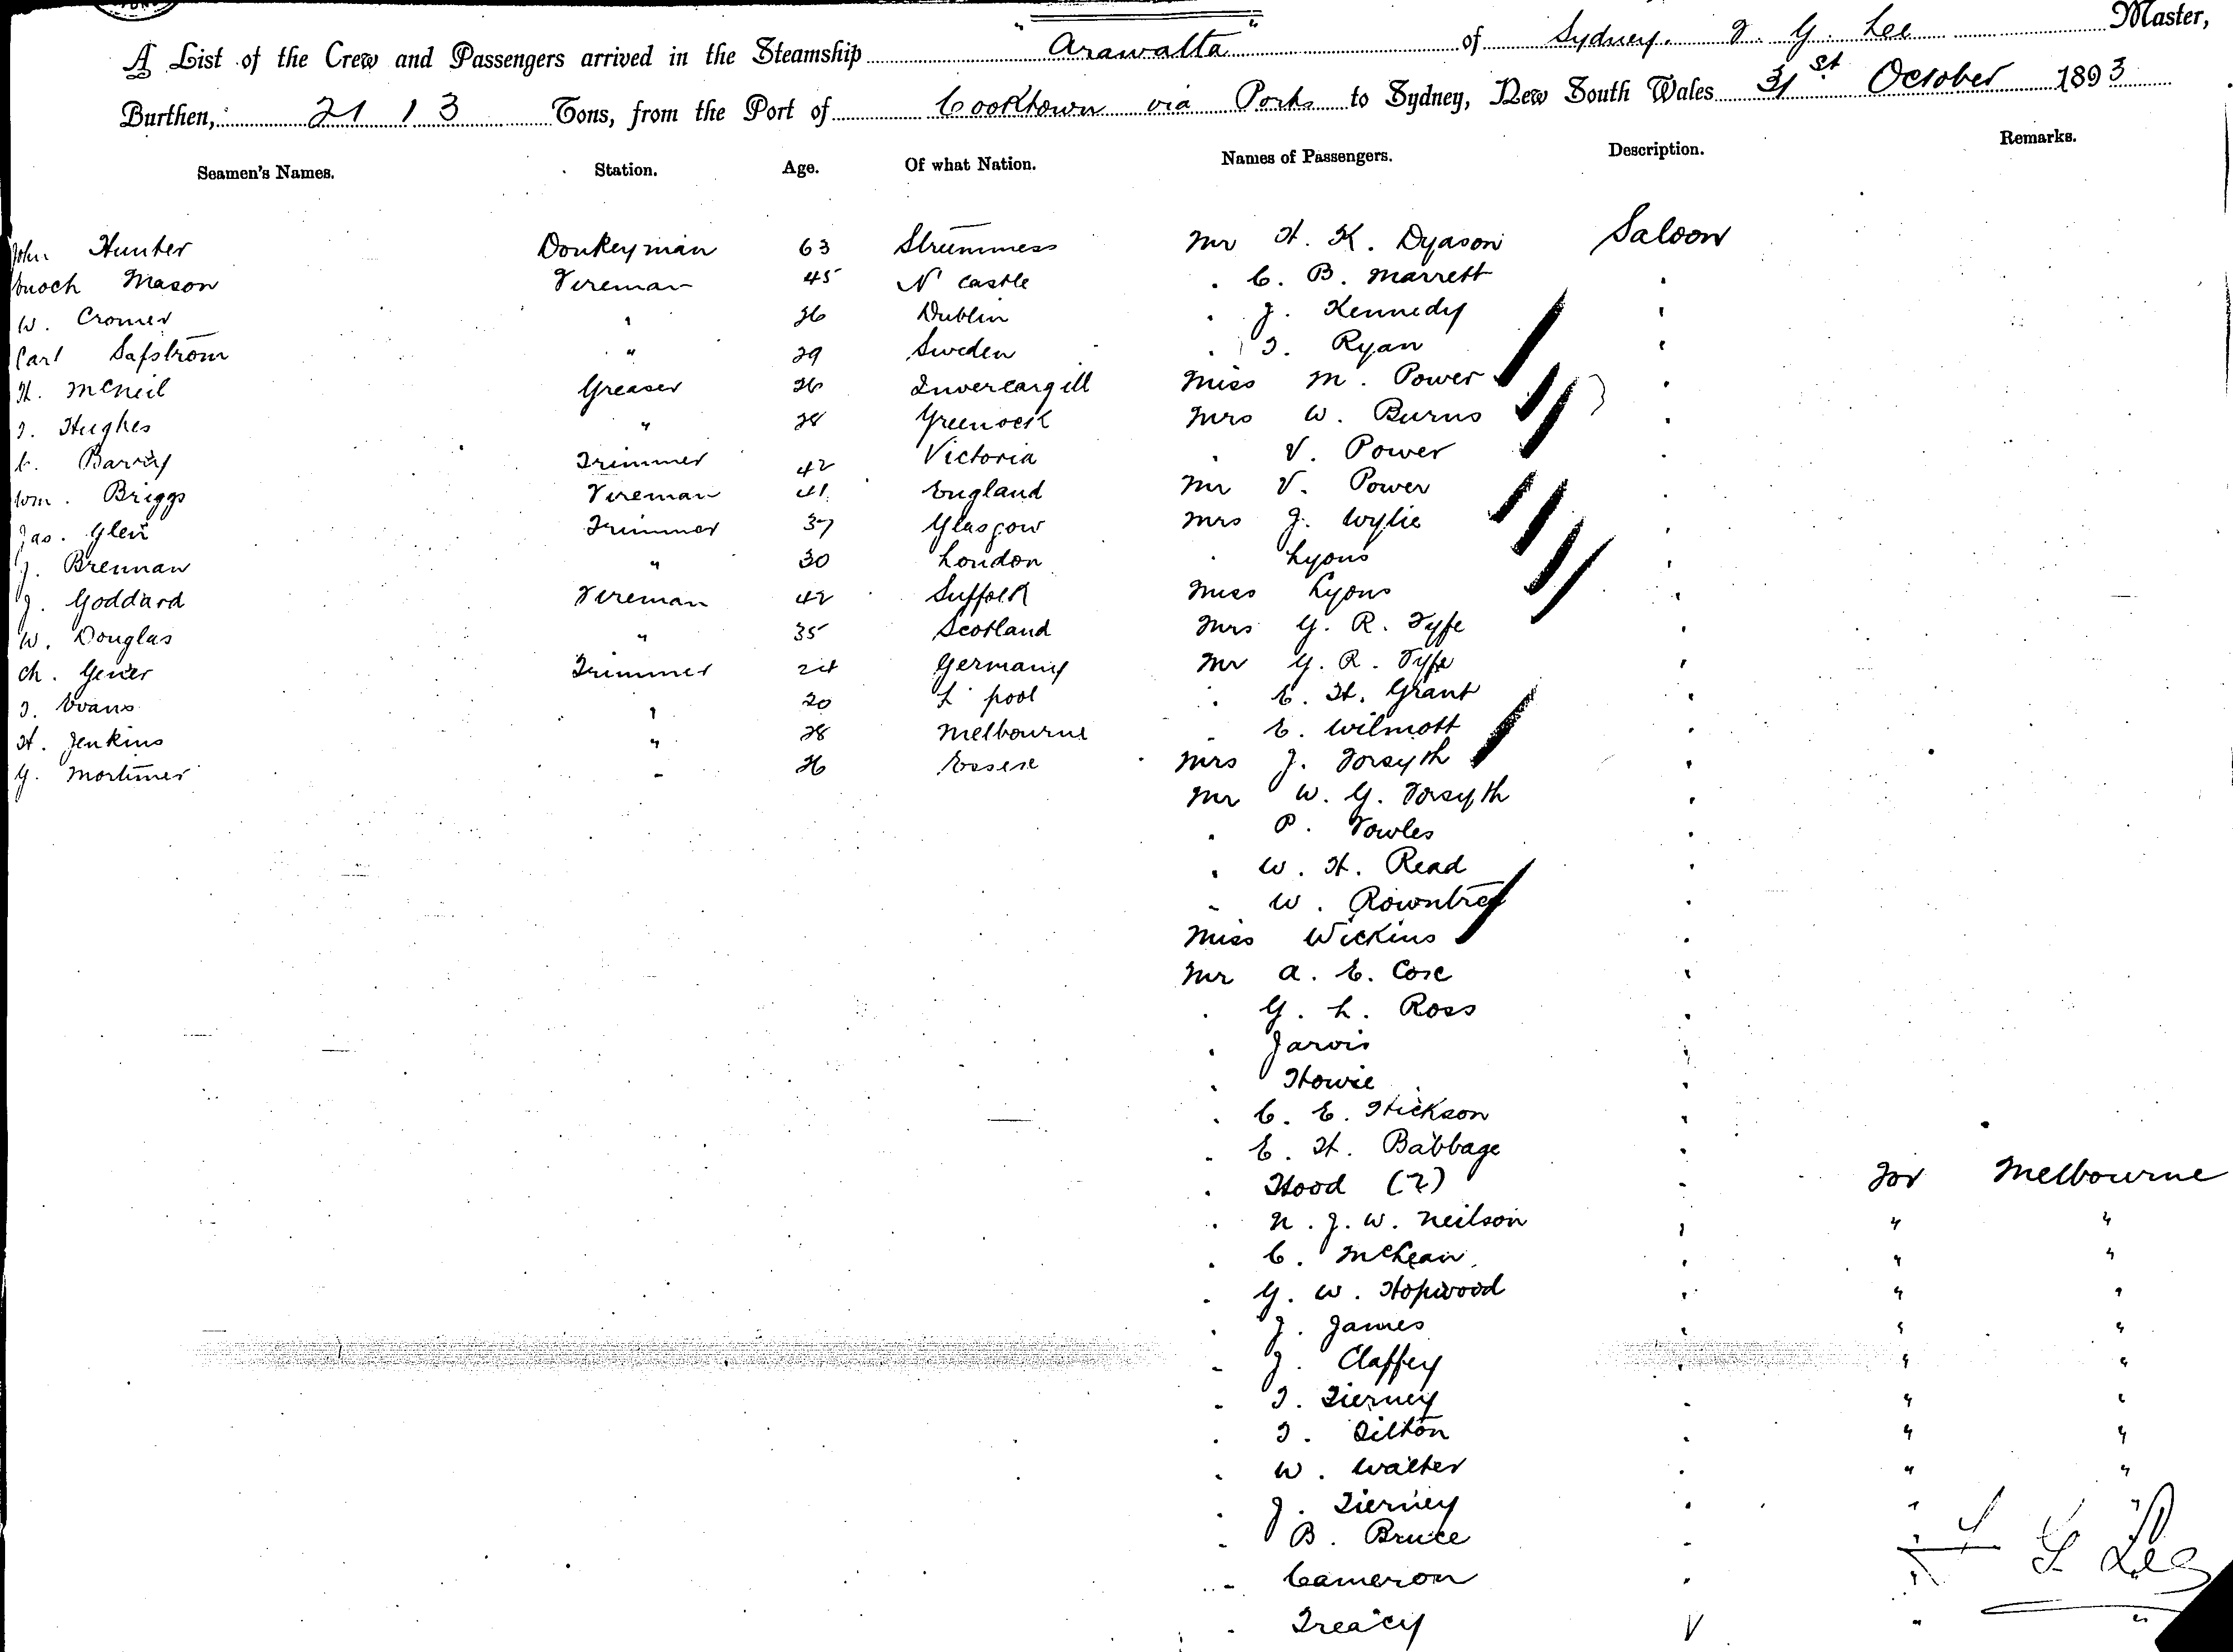 "Arawatta" of Sydney. J. G. Lee Master,
A List of the Crew and Passengers arrived in the Steamship
Burthen, 2113 Tons, from the Port of Cooktown via Ports to Sydney, New South Wales 31st October 1893
Seamen's Names. Station. Age. Of what Nation. Names of Passengers. Description. Remarks.
John Hunter Donkeyman 63 Strumness Mr H. K. Dyason Saloon
Enoch Mason Fireman 45 N castle " C. B. Marrett "
W. Cromer " 26 Dublin " J. Kennedy "
Carl Safstrom " 29 Sweden " T. Ryan "
H. McNeil Greaser 26 Invercargill Miss M. Power "
T. Hughes " 28 Greenock Mrs W. Burns "
C. Barry Trimmer 42 Victoria " V. Power "
Wm. Briggs Fireman 41 England Mr V. Power "
Jas. Glen Trimmer 37 Glasgow Mrs J. Wylie "
J. Brennan " 30 London " Lyons "
J. Goddard Fireman 42 Suffolk Miss Lyons "
W. Douglas " 35 Scotland Mrs G. R. Fyfe "
Ch. Trimmer 24 Germany Mr G. R. Fyfe "
T. Evans " 20 L'pool " E. H. Grant "
H. Jenkins " 28 Melbourne " E. Wilmott "
G. Mortimer " 26 Essex Mrs J. Forsyth "
Mr W. G. Forsyth "
" P. Fowles "
" W. H. Read "
" W. Rowntree "
Miss Wickins "
Mr A. E. Cox "
" G. L. Ross "
" Jarvis "
" Howie "
" C. E. Hickson "
" E. H. Babbage "
" Hood (2) " For Melbourne
" N. J. W. Neilson " " "
" C. McLean " " "
" G. W. Hopwood " " "
" J. James " " "
" J. Claffey " " "
" T. Tierney " " "
" T. Tilton " " "
" W. Walter " " "
" J. Tierney " " "
" B. Bruce " "
" Cameron " "
" Treacy " "
Lee